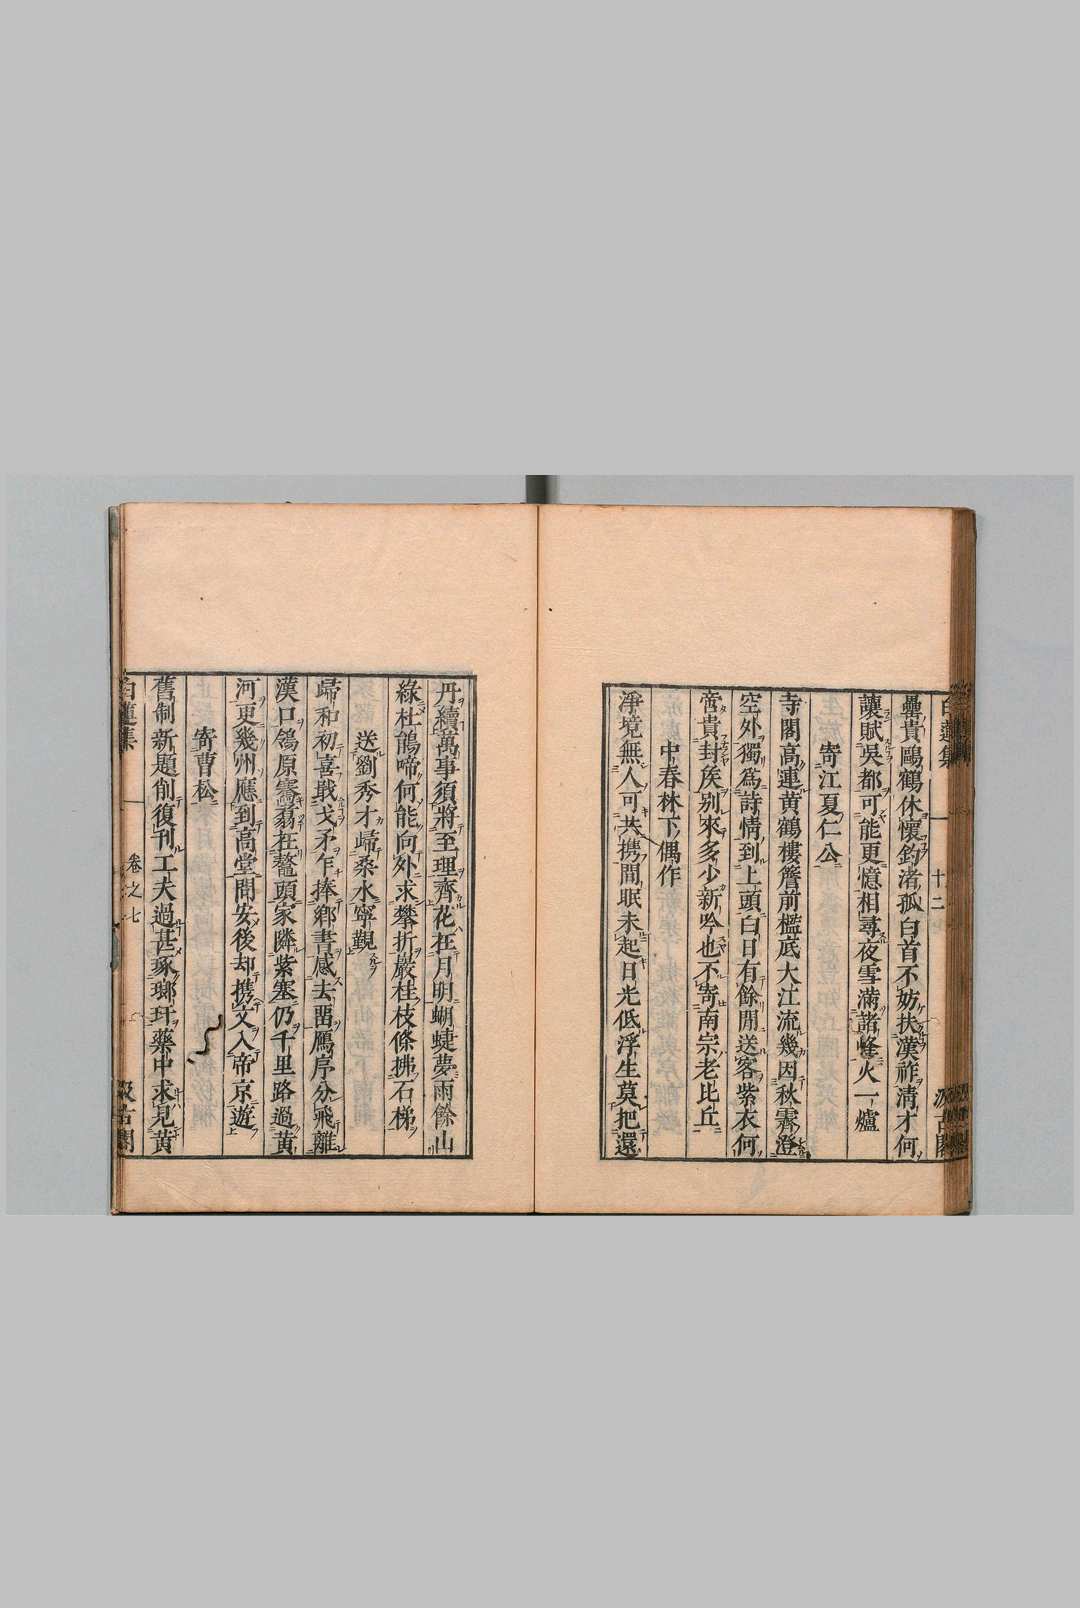 白蓮集
十二
汲古閣
疊貴鷗鶴休懷釣渚孤白首不妨扶漢祚清才何
讓賦吳都可能更憶相尋夜雪滿諸峰火一爐
寄江夏仁公
寺閣高連黃鶴樓簷前檻底大江流幾因秋霽澄
空外獨爲詩情到上頭白日有餘閒送客紫衣何
啻貴封侯别來多少新吟也不寄南宗老比丘
中春林下偶作
淨境無人可共携閒眠未起日光低浮生莫把還
丹續萬事須將至理齊花在月明蝴蜨夢雨餘山
綠杜鵑啼何能向外求攀折巖桂枝條拂石梯
送劉秀才歸桑水寧覲
歸和初喜戢戈矛乍捧鄉書感去畱鴈序分飛離
漢口鴒原騫翥在鼇頭家隣紫塞仍千里路過黃
河更幾州應到高堂問安後却携文入帝京遊
寄曹松
舊制新題削復刊工夫過甚琢瑯玕藥中求見黃
白蓮集
卷之七
汲古閣